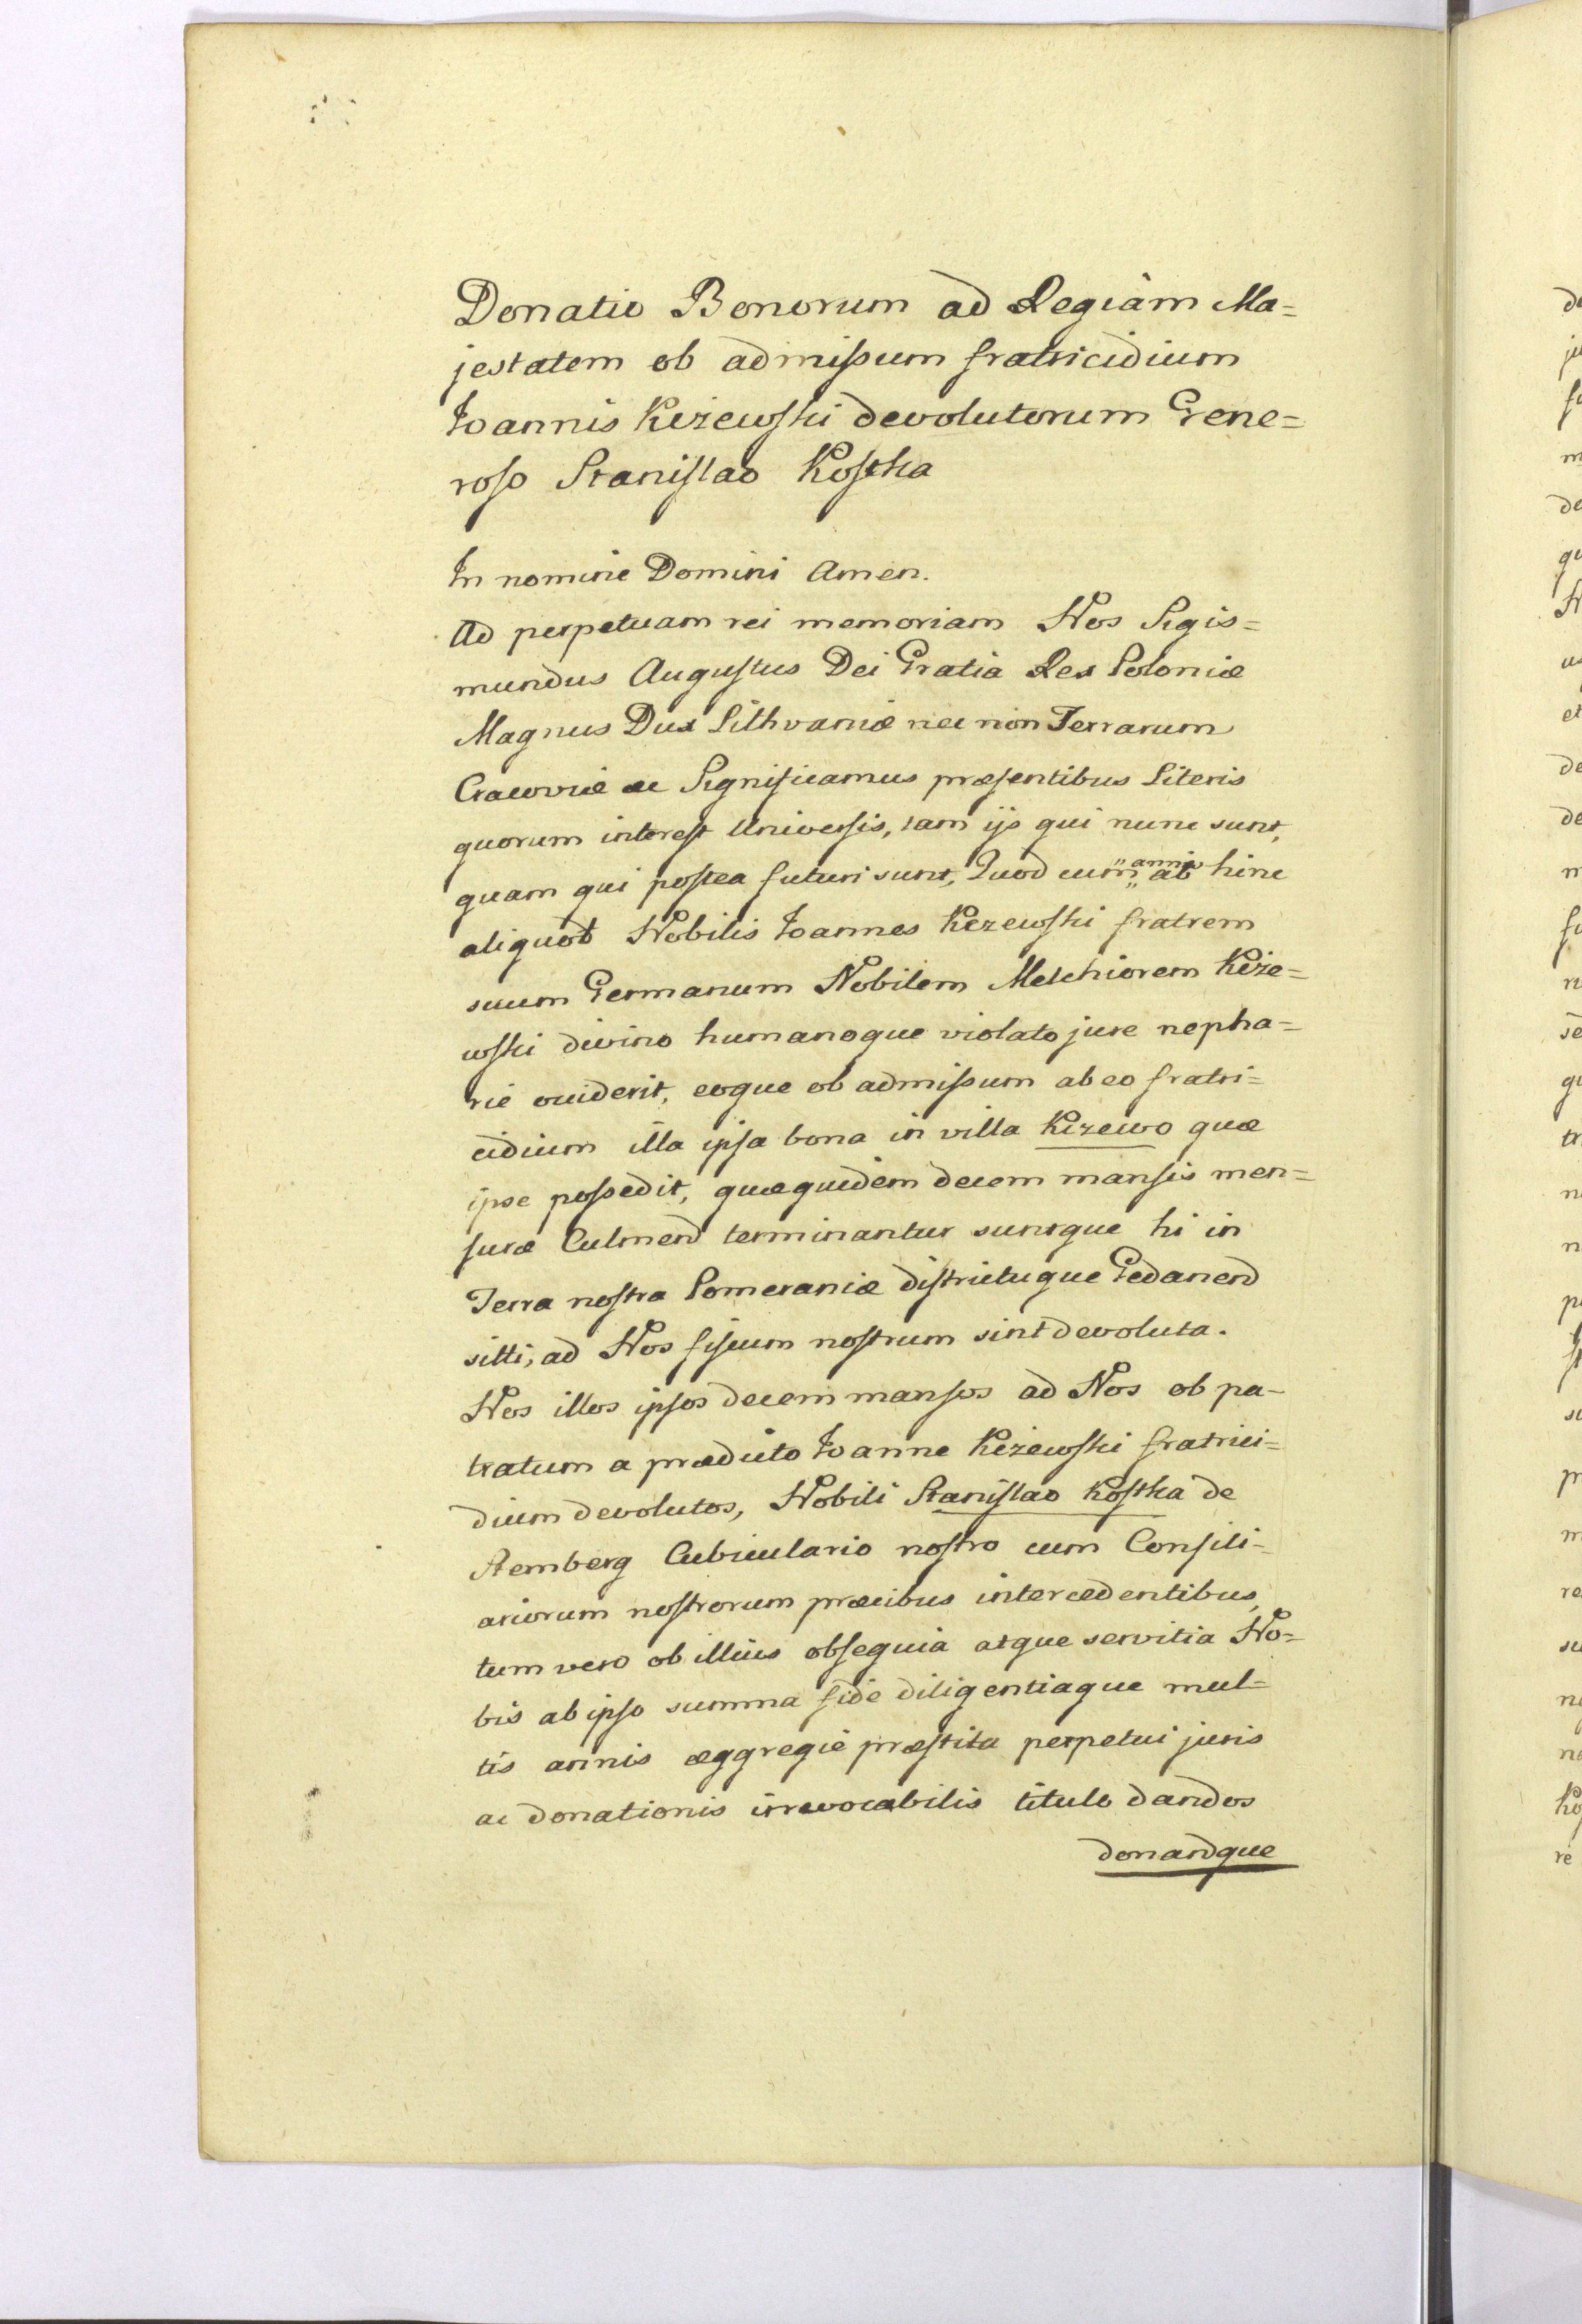 Donatio Bonorum ad Regiam Ma=
jestatem ob admissum fratricidium
Joannis Kiżewski devolutorum Gene=
roso Stanislao Kostka
In nomine Domini Amen.
Ad perpetuam rei memoriam Nos Sigis=
mundus Augustus Dei Gratia Rex Poloniæ
Magnus Dux Lithvaniæ nec non Terrarum
Cracoviæ ac Significamus præsentibus Literis
quorum interest Universis, tam ijs qui nunc sunt,
quam qui postea futuri sunt, Quod cum annis ab hinc
aliquot Nobilis Joannes Kezewski fratrem
suum Germanum Nobilem Melchiorem Kiże=
wski divino humanoque violato jure nepha=
rie occiderit, eoque ob admissum ab eo fratri=
cidium illa ipsa bona in villa Kizewo quæ
ipse possedit, quæquidem decem mansis men=
suræ Culmend terminantur suntque hi in
Terra nostra Pomeraniæ districtuque Gedanend
sitti, ad Nos fiscum nostrum sint devoluta.
Nos illos ipsos decem mansos ad Nos ob pa-
tratum a prædicto Joanne Kiżewski fratrici=
dium devolutos, Nobili Stanislao Kostka de
Stemberg Cubiculario nostro cum Consili=
ariorum nostrorum præcibus intercedentibus,
tum vero ob illius obsequia atque servitia No=
bis ab ipso summa fide diligentiaque mul=
tis annis æggregie præstita perpetui juris
ac donationis irrevocabilis titulo dandos
donandque